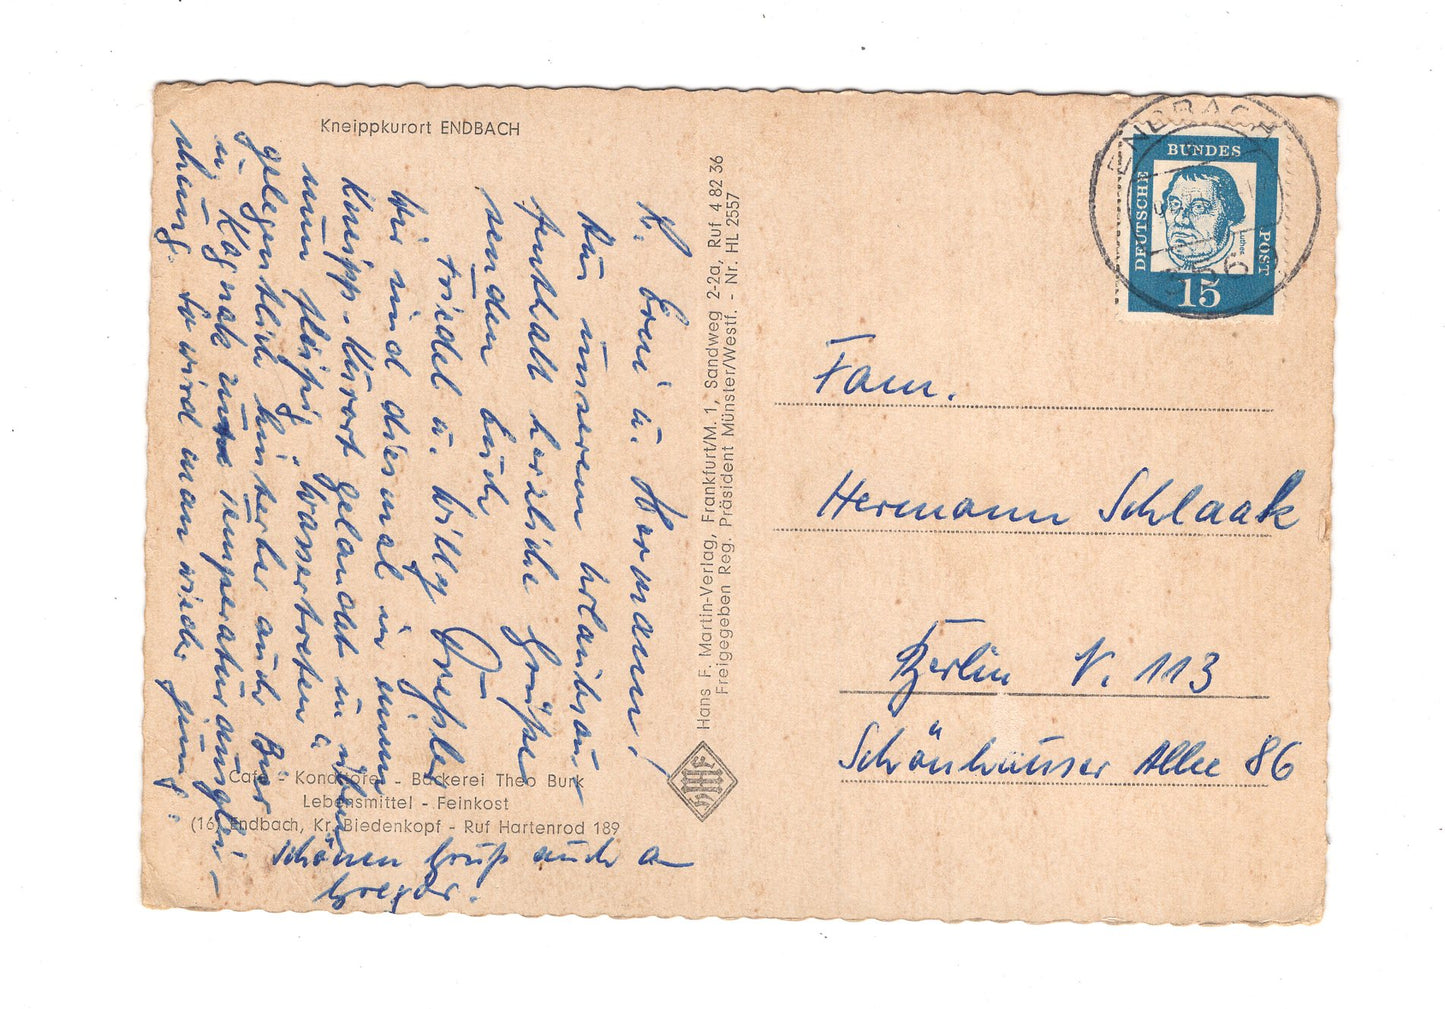 Kneippkurort ENDBACH
L. Erni u. Hermann!
Aus unserem Urlaubsau-
fenthalt herzliche Grüße
senden Euch
Friedel u. Willy Dreßler
Wir sind diesmal in einem
Kneipp-Kurort gelandet u. üben
nun fleißig "Wassertreten" u.
gelegentlich hinterher auch Bier
u. Kognak zum Temperaturausglei-
chung. So wird man wieder jung.
Schönen Gruß auch an
Gregor.
Café - Konditorei - Bäckerei Theo Burk
Lebensmittel - Feinkost
(16) Endbach, Kr. Biedenkopf - Ruf Hartenrod 189
Hans F. Martin-Verlag, Frankfurt/M. 1, Sandweg 2-2a, Ruf 4 82 36
Freigegeben Reg. Präsident Münster/Westf. - Nr. HL 2557
HFM
ENDBACH
DEUTSCHE
BUNDES
POST
Luther
15
Fam.
Hermann Schlaak
Berlin N. 113
Schönhauser Allee 86